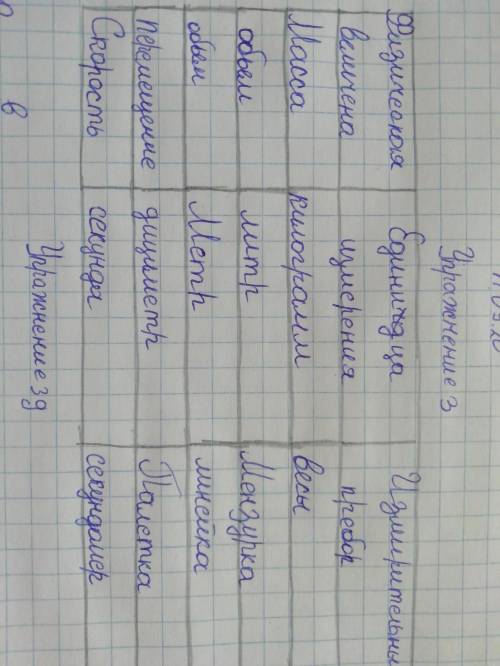 Упражнение 3
Физическая Измирительны
величена измерения пребор
Масса килограмм весы
объем литр Мензурка
объем Метр линейка
Перемещение дицыметр Палетка
Скорость секунда секундомер
Упражнение 39
в